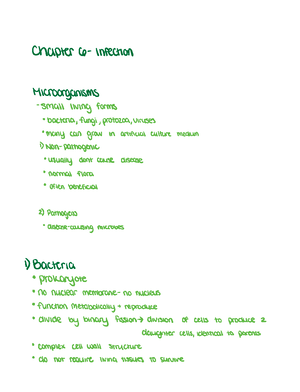 Chapter 6- Infection
Microorganisms
- Small living forms
* bacteria, fungi, protozoa, viruses
* many can grow in artificial culture medium
1) Non-pathogenic
* usually dont cause disease
* normal flora
* often beneficial
2) Pathogens
* disease-causing microbes
1) Bacteria
* prokaryote
* no nuclear membrane- no nucleus
* function metabolically + reproduce
* divide by binary fission → division of cells to produce 2
daughter cells, identical to parents
* complex cell wall structure
* do not require living tissues to survive